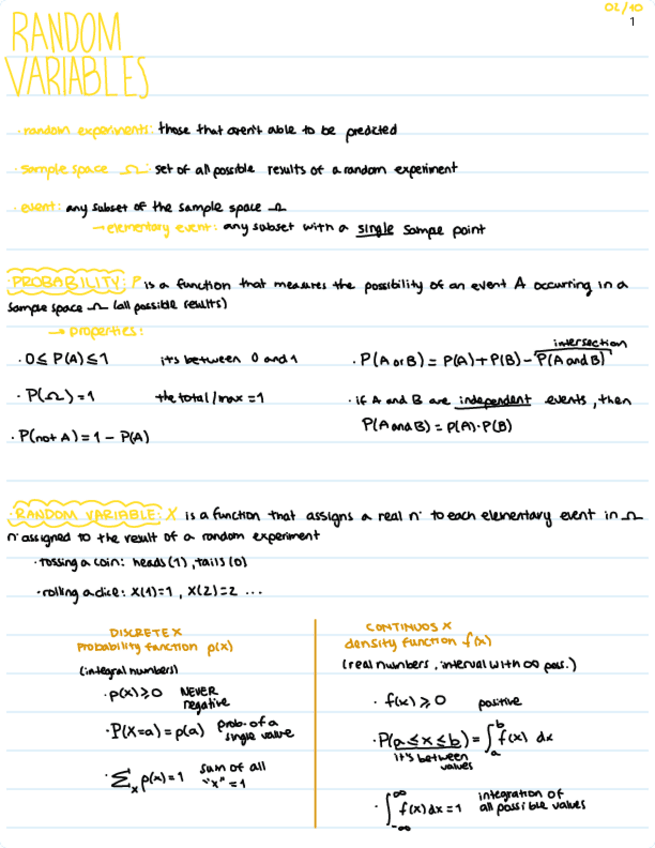 02/10
1
RANDOM
VARIABLES
· random experiments: those that aren't able to be predicted
· sample space Ω: set of all possible results of a random experiment
· event: any subset of the sample space Ω
→ elementary event: any subset with a single sample point
· PROBABILITY: P is a function that measures the possibility of an event A occurring in a
sample space Ω (all possible results)
→ properties:
· 0 ≤ P(A) ≤ 1 it's between 0 and 1
· P(Ω) = 1 the total/max = 1
· P(not A) = 1 − P(A)
intersection
· P(A or B) = P(A) + P(B) − P(A and B)
· if A and B are independent events, then
P(A and B) = P(A) · P(B)
· RANDOM VARIABLE: X is a function that assigns a real n· to each elementary event in Ω
n· assigned to the result of a random experiment
· tossing a coin: heads (1), tails (0)
· rolling a dice: X(1)=1, X(2)=2 ...
DISCRETE X
probability function p(x)
(integral numbers)
· p(x) ≥ 0 NEVER
negative
· P(X=a) = p(a) prob. of a
single value
· ∑x p(x) = 1 sum of all
"x" = 1
CONTINUOS X
density function f(x)
(real numbers, interval with ∞ poss.)
· f(x) ≥ 0 positive
· P(a ≤ x ≤ b) = ∫ₐᵇ f(x) dx
it's between
values
· ∫₋∞^∞ f(x) dx = 1 integration of
all possible values